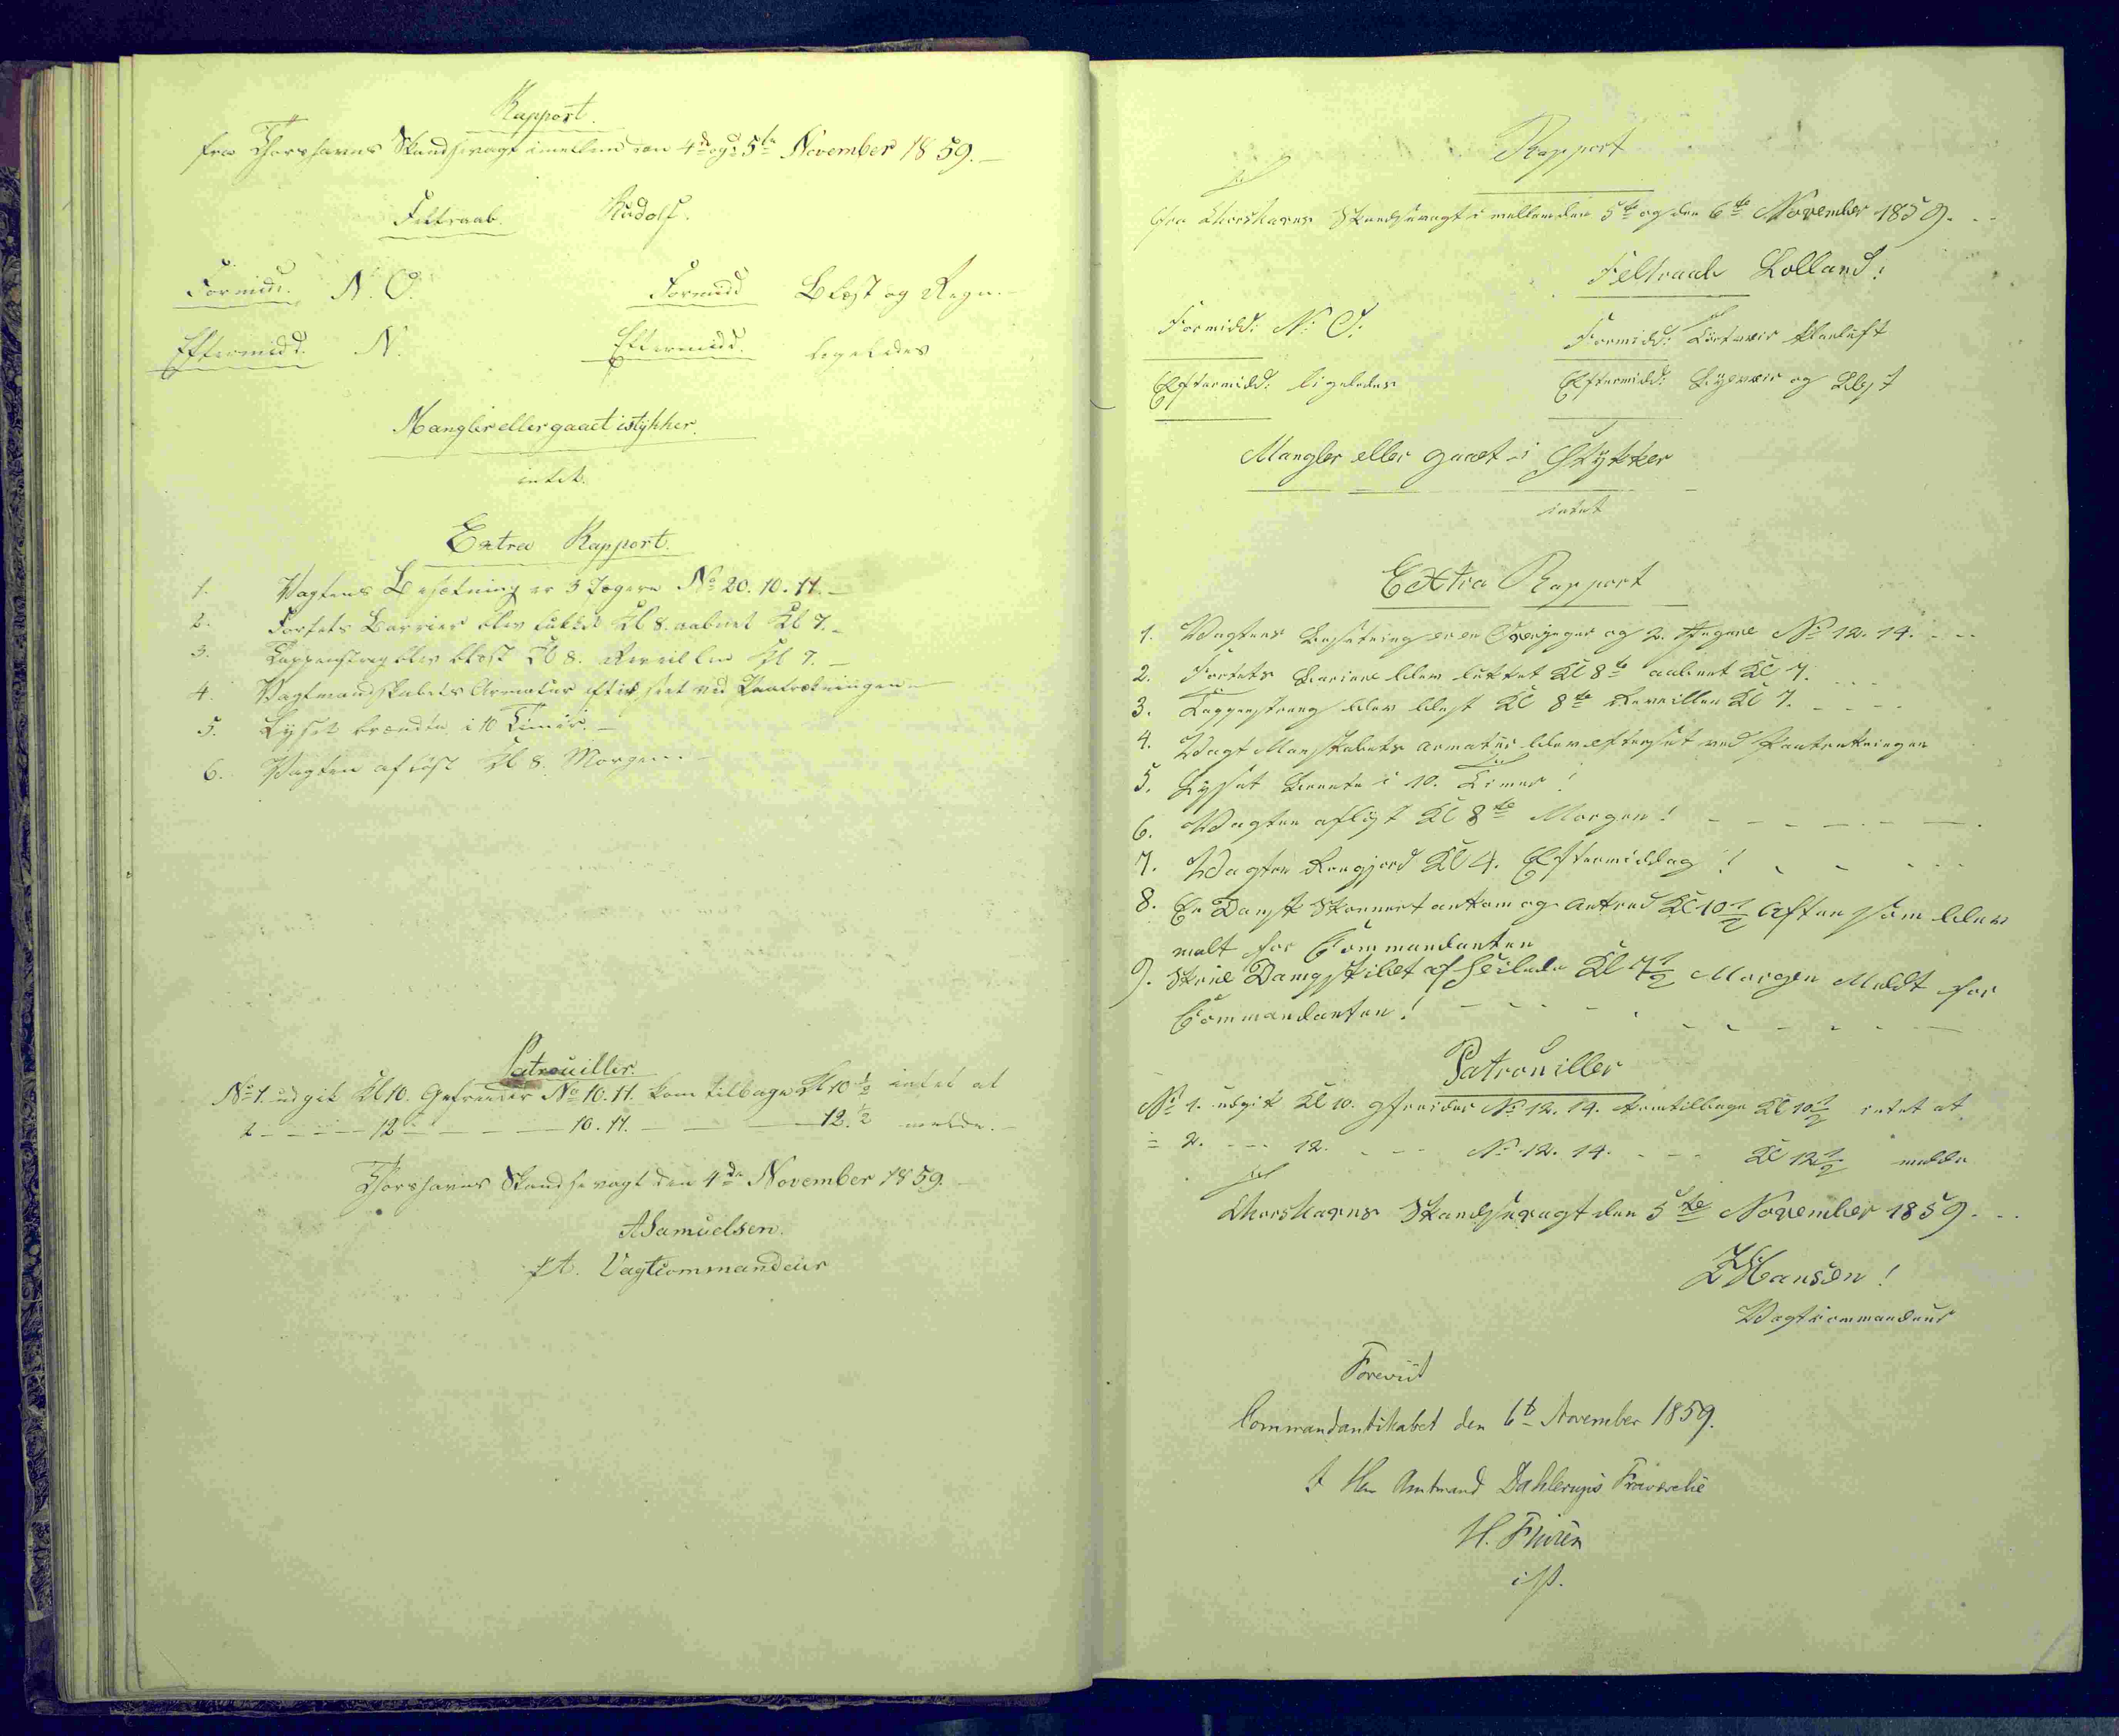 Rapport.
fra Thorshavns Skandsevagt imellem den 4de og 5te November 1859.
Feltraab. Rudolf.
Formidd. N. O. Formidd Blæst og Regn.
Eftermidd. N. Eftermidd. ligeledes
Mangler eller gaaet istykker.
intet.
Extra Rapport.
1. Vagtens Besætning er 3 Jægere No 20. 10. 11.
2. Fortets Barrier blev lukket Kl 8. aabnet Kl 7.
3. Tappenstreg blev blæst Kl 8. Reveillen Kl 7.
4. Vagtmandskabets Armatur efterseet ved Paatrækningen
5. Lyset brændte i 10 Timer.
6. Vagten afløst Kl 8. Morgen.
Patrouiller.
No 1. udgik Kl 10. Gefreider No 10. 11. kom tilbage Kl 10 1/2 intet at
2 - - - 12 - - - 10. 11. - - - 12. 1/2 melde.
Thorshavns Skandsevagt den 4de November 1859.
A Samuelsen.
p.t. Vagtcommandeur
Rapport
fra Thorshavns Skandsevagt imellem den 5te og den 6te November 1859.
Feltraab Lolland:
Formidd: N: O: Formidd: Tørtveir Klarluft
Eftermidd: ligeledes Eftermidd: Ligeveir og Blæst
Mangler eller gaaet i Stykker
intet
Extra Rapport
1. Vagtens Besætning er en Overjæger og 2. Jægere No 12. 14.
2. Fortets Bariere blev lukket Kl 8te aabnet Kl 7.
3. Tappenstreng blev blæst Kl 8te Reveillen Kl 7.
4. Vagt Manskabets armatur blev efterset ved Paatrækningen
5. Lyset Brente i 10. Timer!
6. Vagten afløst Kl 8te Morgen!
7. Vagten Rengjord Kl 4. Eftermiddag!
8. En Dansk Skonnert ankom og Ankred Kl 10 1/2 Aften som blev
melt for Commandanten
9. Skrue Dampskibet afseilede Kl 7 1/2 Morgen Meldt for
Commandanten!
Patrouiller
No 1. udgik Kl 10. gfreider No 12. 14. kom tilbage Kl 10 1/2 intet at
= 2. - - - 12. - - - No 12. 14. - - - Kl 12 1/2 melde
Thorshavns Skandsevagt den 5te November 1859.
Z Hansen!
Vagtcommandeur
Foreviist
Commandantskabet den 6te November 1859.
I Hr Amtmand Dahlerups Fraværelse
H.